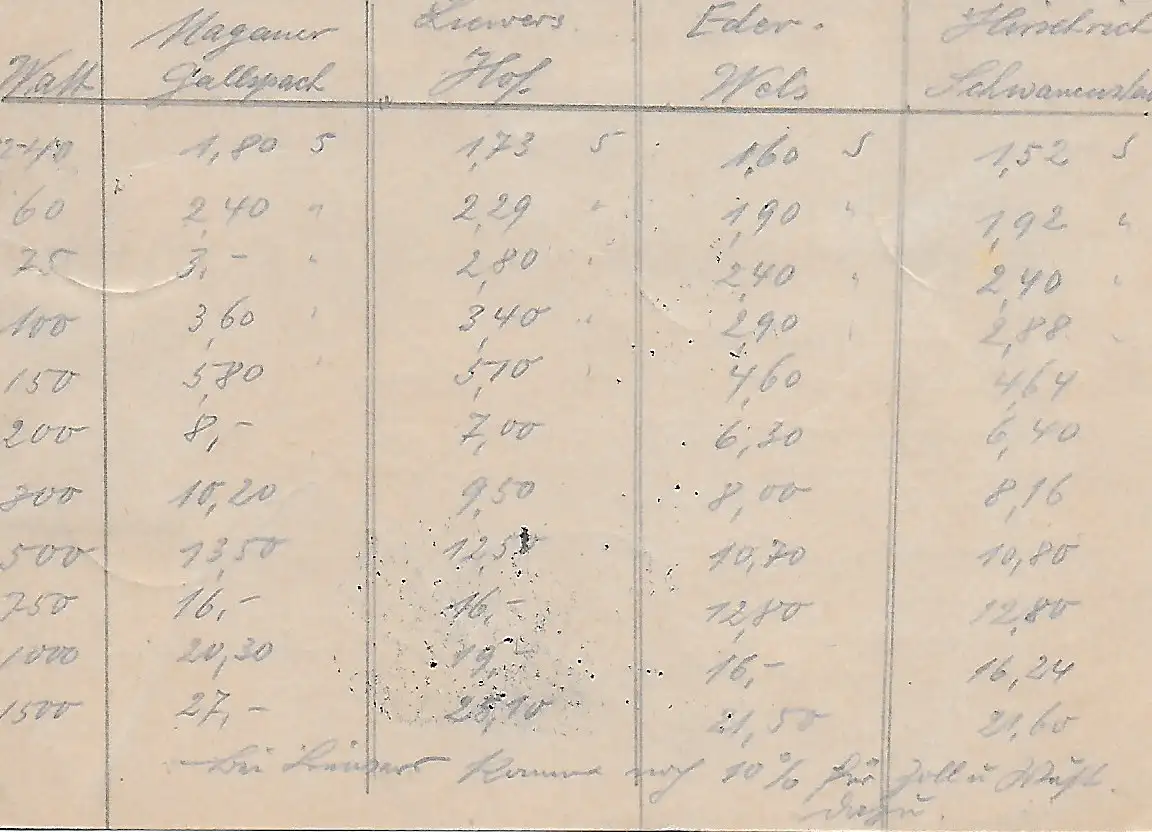 Magauer Siewers Eder. Hirschrich
Watt Gallspach Hof. Wels Schwanensta
1,80 S 1,73 S 1,60 S 1,52 S
60 2,40 " 2,29 " 1,90 " 1,92 "
75 3,- " 2,80 " 2,40 " 2,40 "
100 3,60 " 3,40 " 2,90 " 2,88 "
150 5,80 " 5,10 " 4,60 4,64
200 8,- 7,00 6,30 6,40
300 10,20 9,50 8,00 8,16
500 13,50 12,50 10,70 10,80
750 16,- 16,- 12,80 12,80
1000 20,30 19,- 16,- 16,24
1500 27,- 25,10 21,50 21,60
Bei Siewers komme noch 10% für Zoll u
dazu.